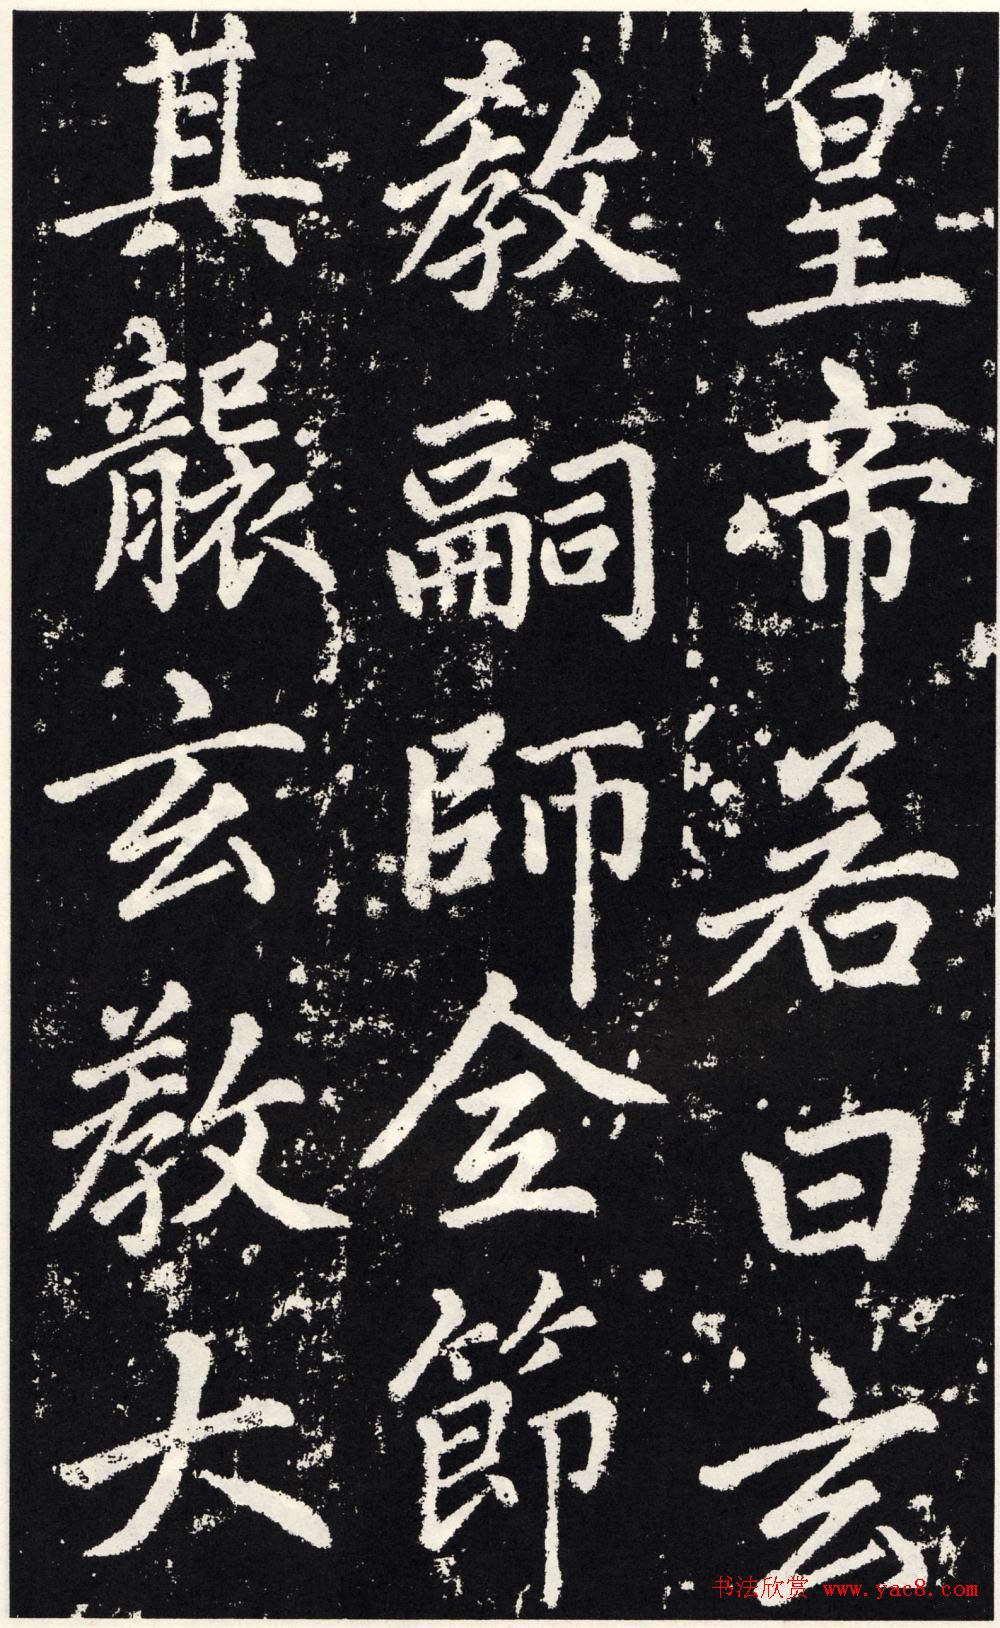 皇帝若曰玄
教嗣師全節
其襲玄教大
书法欣赏 www.yac8.com